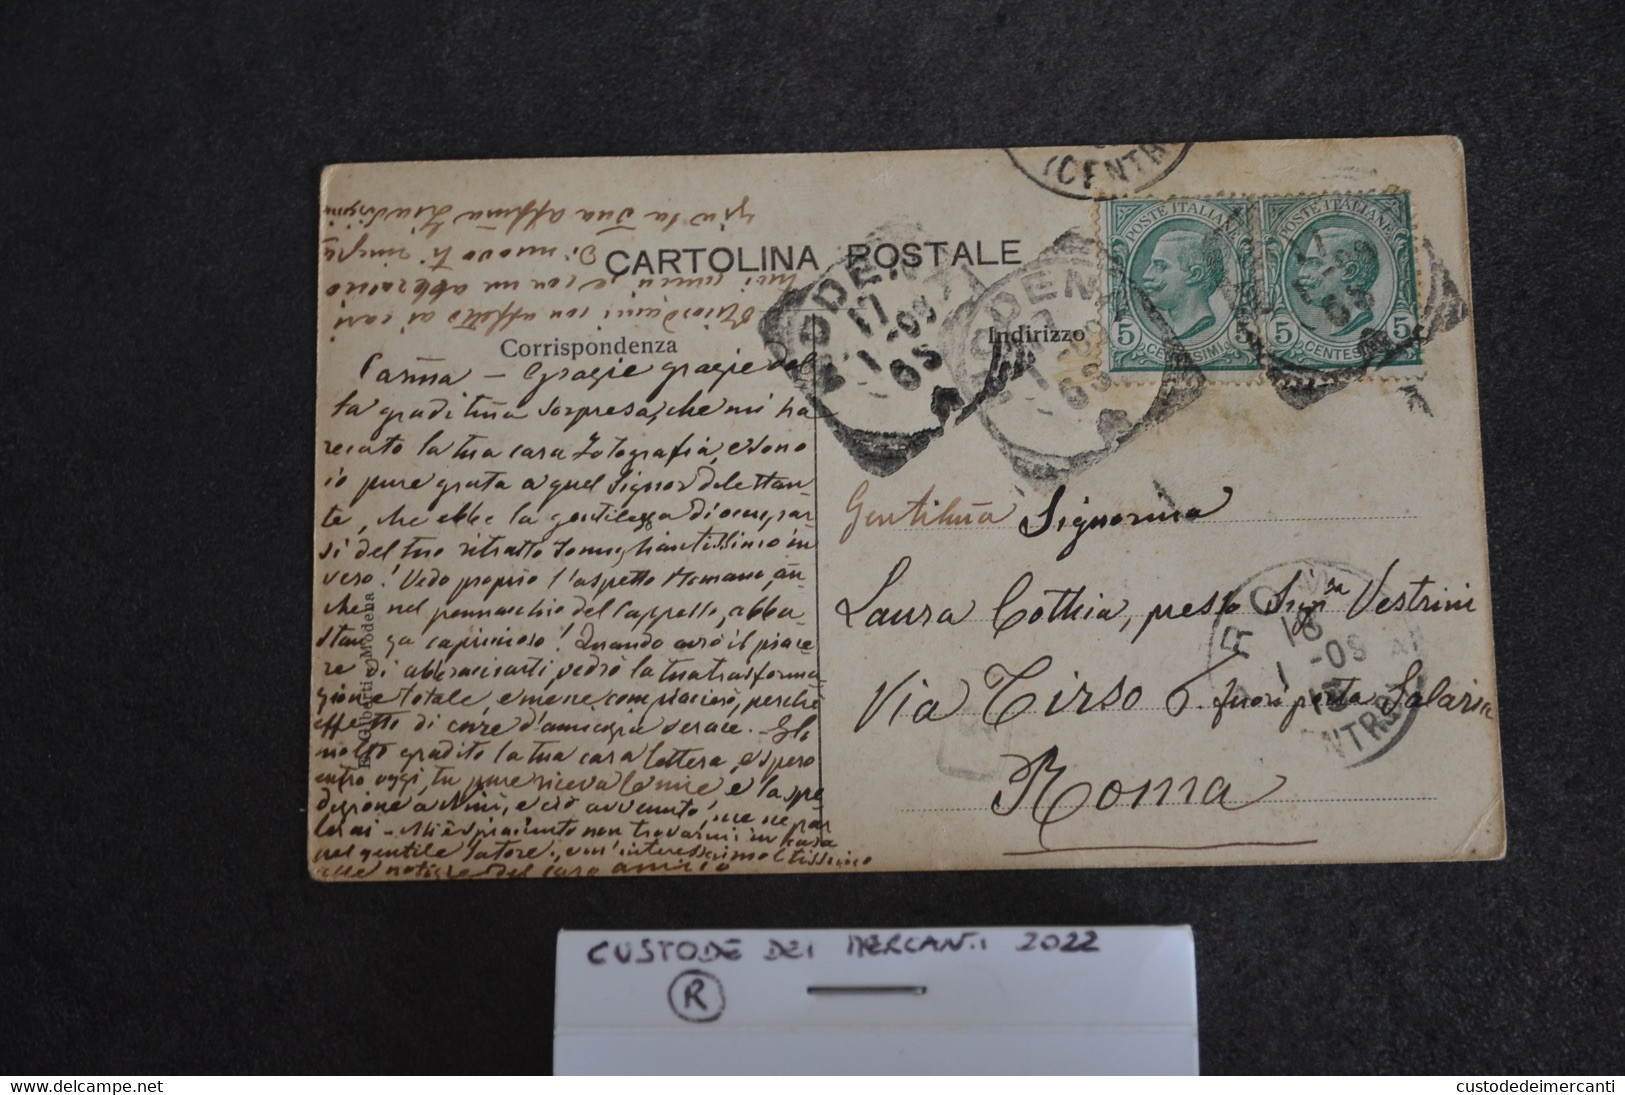 (CENTR
CARTOLINA POSTALE
Corrispondenza
Indirizzo
POSTE ITALIANE
5 CENTESIMI 5
POSTE ITALIANE
5 CENTESIMI 5
MODENA
17
1-09
ROMA
18
1-09
Carma – Grazie grazie del
la graditma sorpresa, che mi ha
recato la tua cara fotografia, e sono
io pure grata a quel Signor dilettan
te, che ebbe la gentilezza di occupar
si del tuo ritratto somigliantissimo in
vero! Vedo proprio l'aspetto Romano, an
che nel pennacchio del Cappello, abba
stanza capriccioso! Quando avrò il piace
re di abbracciarti, vedrò la tua trasforma
zione totale, e me ne compiacerò, perchè
effetti di cure d'amicizia verace. – Ho
molto gradito la tua cara lettera, e spero
entro oggi, tu pure riceva le mie e la spe
dizione a Ninì, e ciò avvenuto, me ne par
lerai – Mi è spiaciuto non trovarmi in casa
nel gentile latore
alle notizie del caro amico
Ricordami con affetto ai cari
tuoi amici e con un abbraccio
Di nuovo ti ringra
zio la tua affma
Gentilma Signorina
Laura Cothia, presso Sigra Vestrini
Via Tirso 6. fuori porta Salaria
Roma
CUSTODE DEI MERCANTI 2022
R
custodedeimercanti